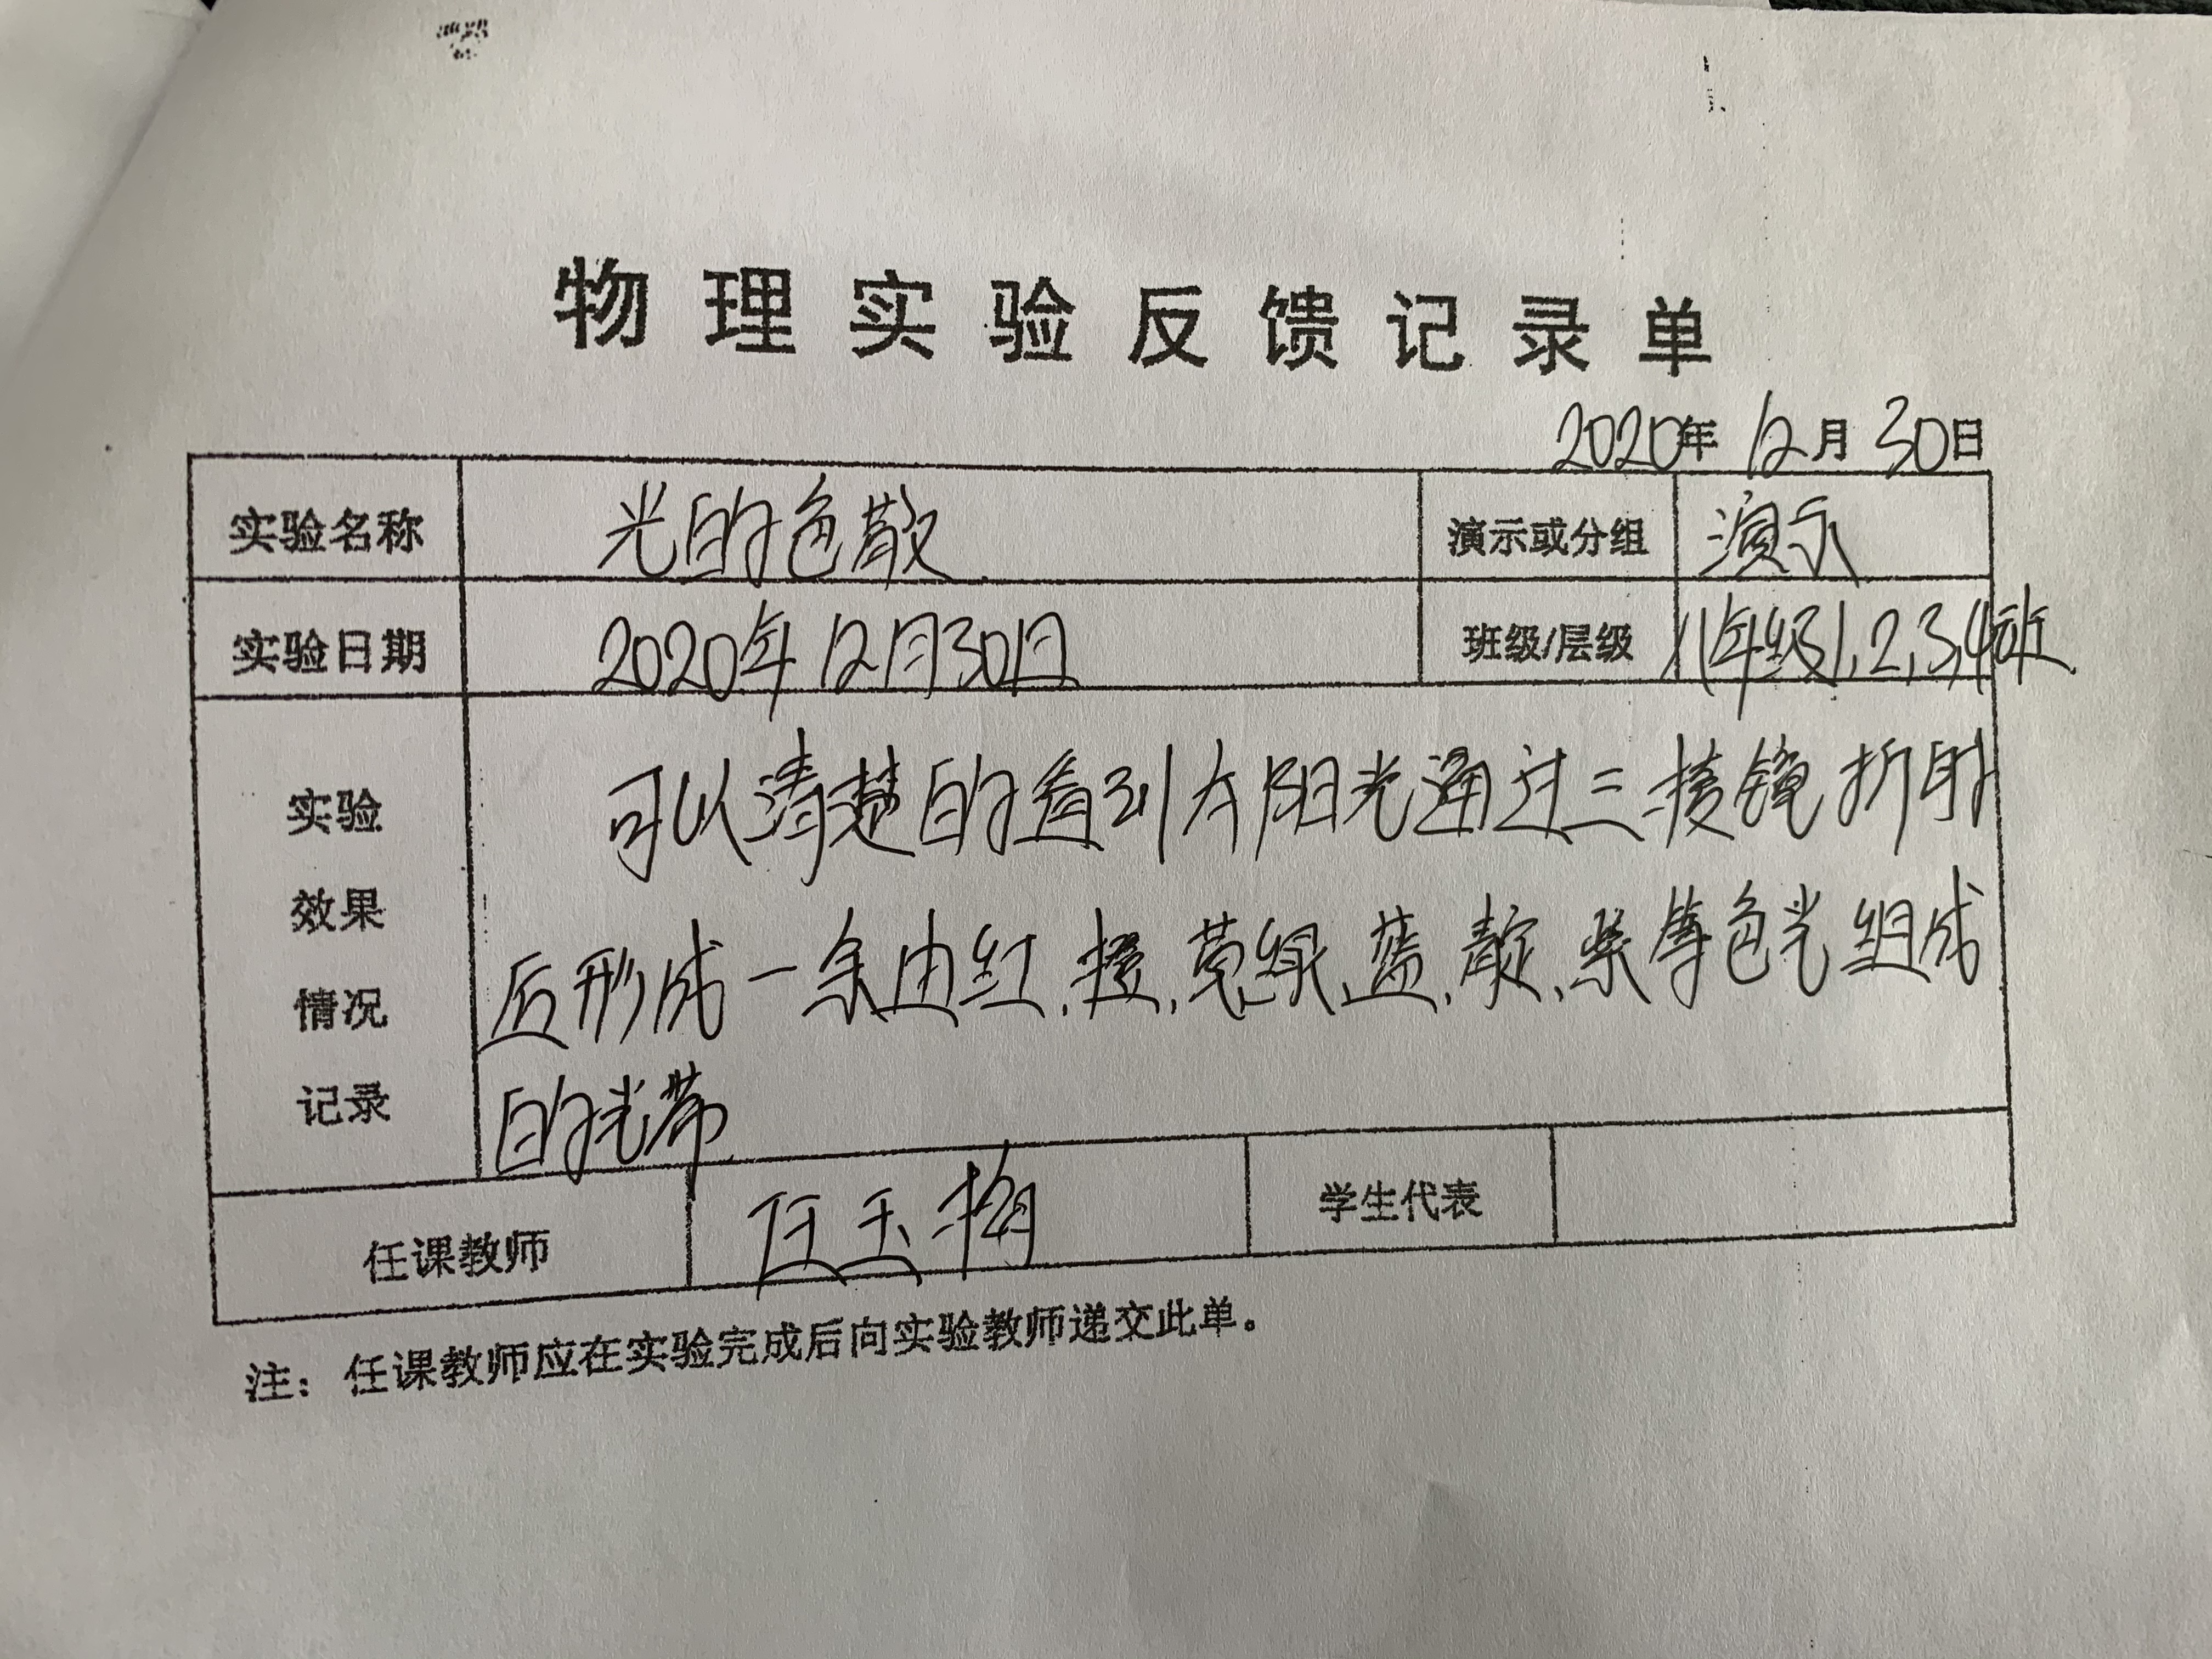 物理实验反馈记录单
2020年12月30日
实验名称 光的色散 演示或分组 演示
实验日期 2020年12月30日 班级/层级 八年级1,2,3,4班
实验效果情况记录
可以清楚的看到太阳光通过三棱镜折射
后形成一条由红、橙、黄、绿、蓝、靛、紫等色光组成
的光带
任课教师 任玉梅 学生代表
注：任课教师应在实验完成后向实验教师递交此单。